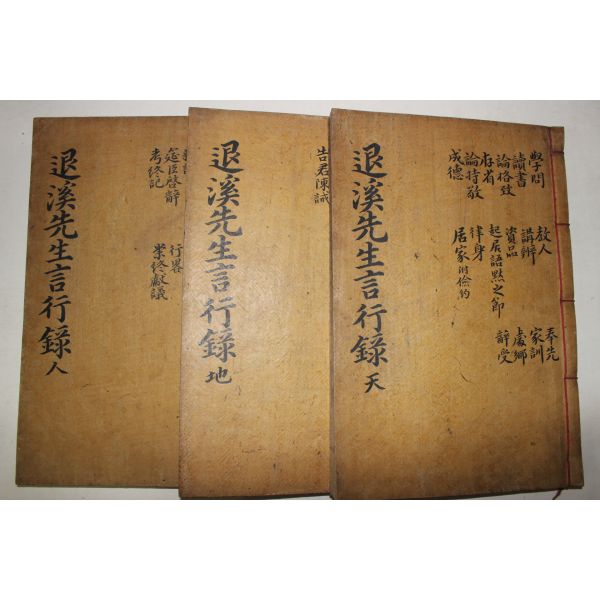 學問
讀書
論格致
存省
論持敬
成德
教人
講辨
資品
起居語默之節
律身
居家 附儉約
奉先
家訓
處鄉
辭受
退溪先生言行錄 天
告君陳誡
退溪先生言行錄 地
筵臣啓辭
考終記
行畧
崇終獻議
退溪先生言行錄 人